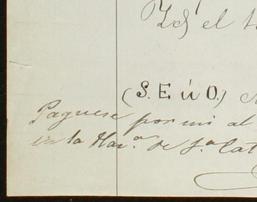 el
(S. E ú O.)
Paguese por mi al
en la Hav.ª de S.ª Cat